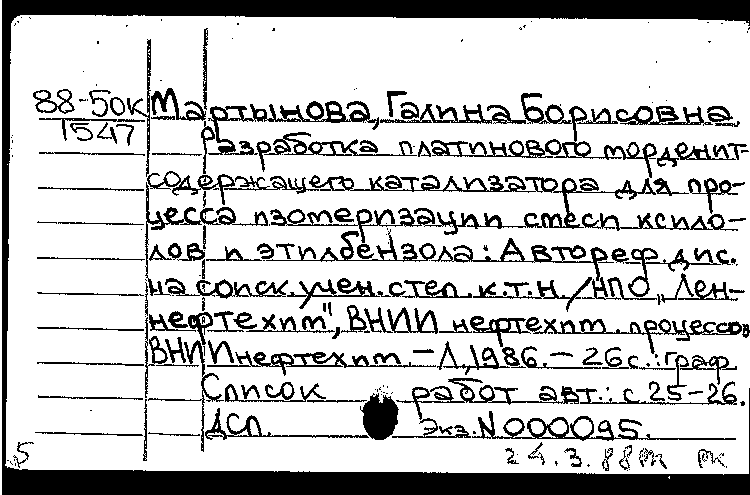 88-50к Мартынова, Галина Борисовна.
1547 Разработка платинового морденит-
содержащего катализатора для про-
цесса изомеризации смеси ксило-
лов и этилбензола: Автореф. дис.
на соиск. учен. степ. к.т.н. / НПО „Лен-
нефтехим", ВНИИ нефтехим. процессов
ВНИИнефтехим. – Л., 1986. – 26 с.: граф.
Список работ авт.: с 25-26.
ДСП. Экз. N 000095.
5 24.3.88